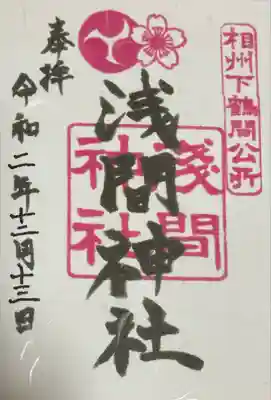 相州下鶴間公所
奉拝
浅間神社
淺間神社
令和二年十二月十三日